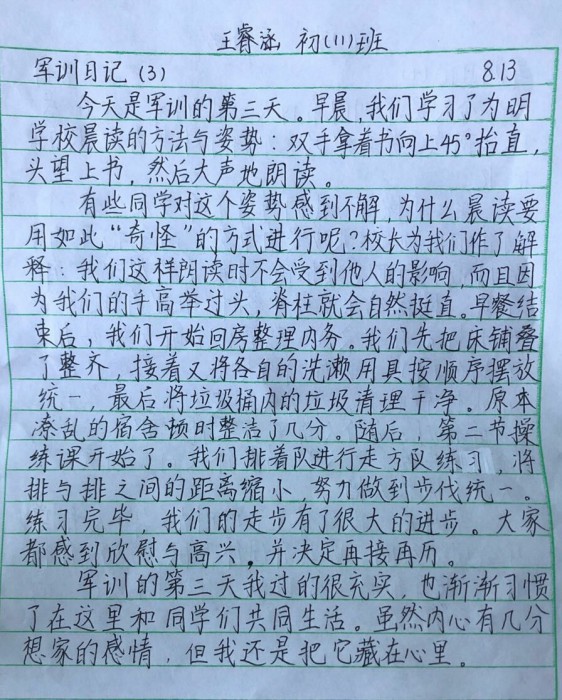 王睿涵 初(11)班
军训日记(3) 8.13
今天是军训的第三天。早晨,我们学习了为明
学校晨读的方法与姿势:双手拿着书向上45°抬直,
头望上书,然后大声地朗读。
有些同学对这个姿势感到不解,为什么晨读要
用如此“奇怪”的方式进行呢?校长为我们作了解
释:我们这样朗读时不会受到他人的影响,而且因
为我们的手高举过头,脊柱就会自然挺直。早餐结
束后,我们开始回房整理内务。我们先把床铺叠
了整齐,接着又将各自的洗漱用具按顺序摆放
统一,最后将垃圾桶内的垃圾清理干净。原本
潦乱的宿舍顿时整洁了几分。随后,第二节操
练课开始了。我们排着队进行走方队练习,将
排与排之间的距离缩小,努力做到步伐统一。
练习完毕,我们的走步有了很大的进步。大家
都感到欣慰与高兴,并决定再接再历。
军训的第三天我过的很充实,也渐渐习惯
了在这里和同学们共同生活。虽然内心有几分
想家的感情,但我还是把它藏在心里。